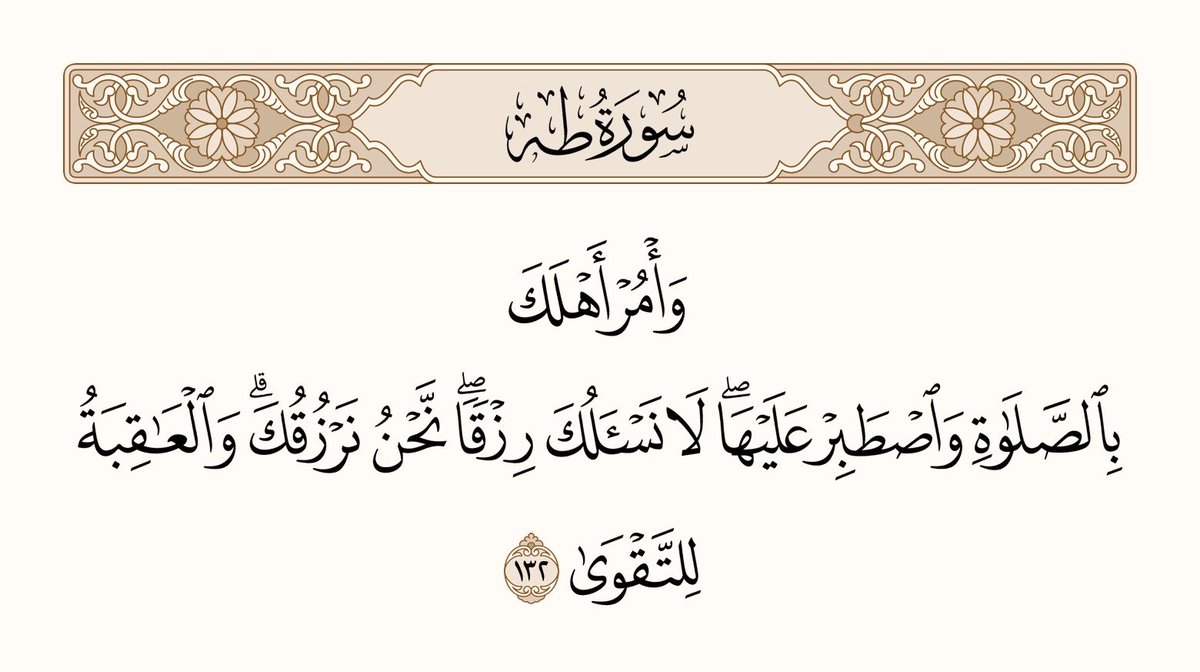 سُورَةُ طه
وَأۡمُرۡ أَهۡلَكَ
بِٱلصَّلَوٰةِ وَٱصۡطَبِرۡ عَلَيۡهَاۖ لَا نَسۡـَٔلُكَ رِزۡقٗاۖ نَّحۡنُ نَرۡزُقُكَۗ وَٱلۡعَٰقِبَةُ
لِلتَّقۡوَىٰ ١٣٢